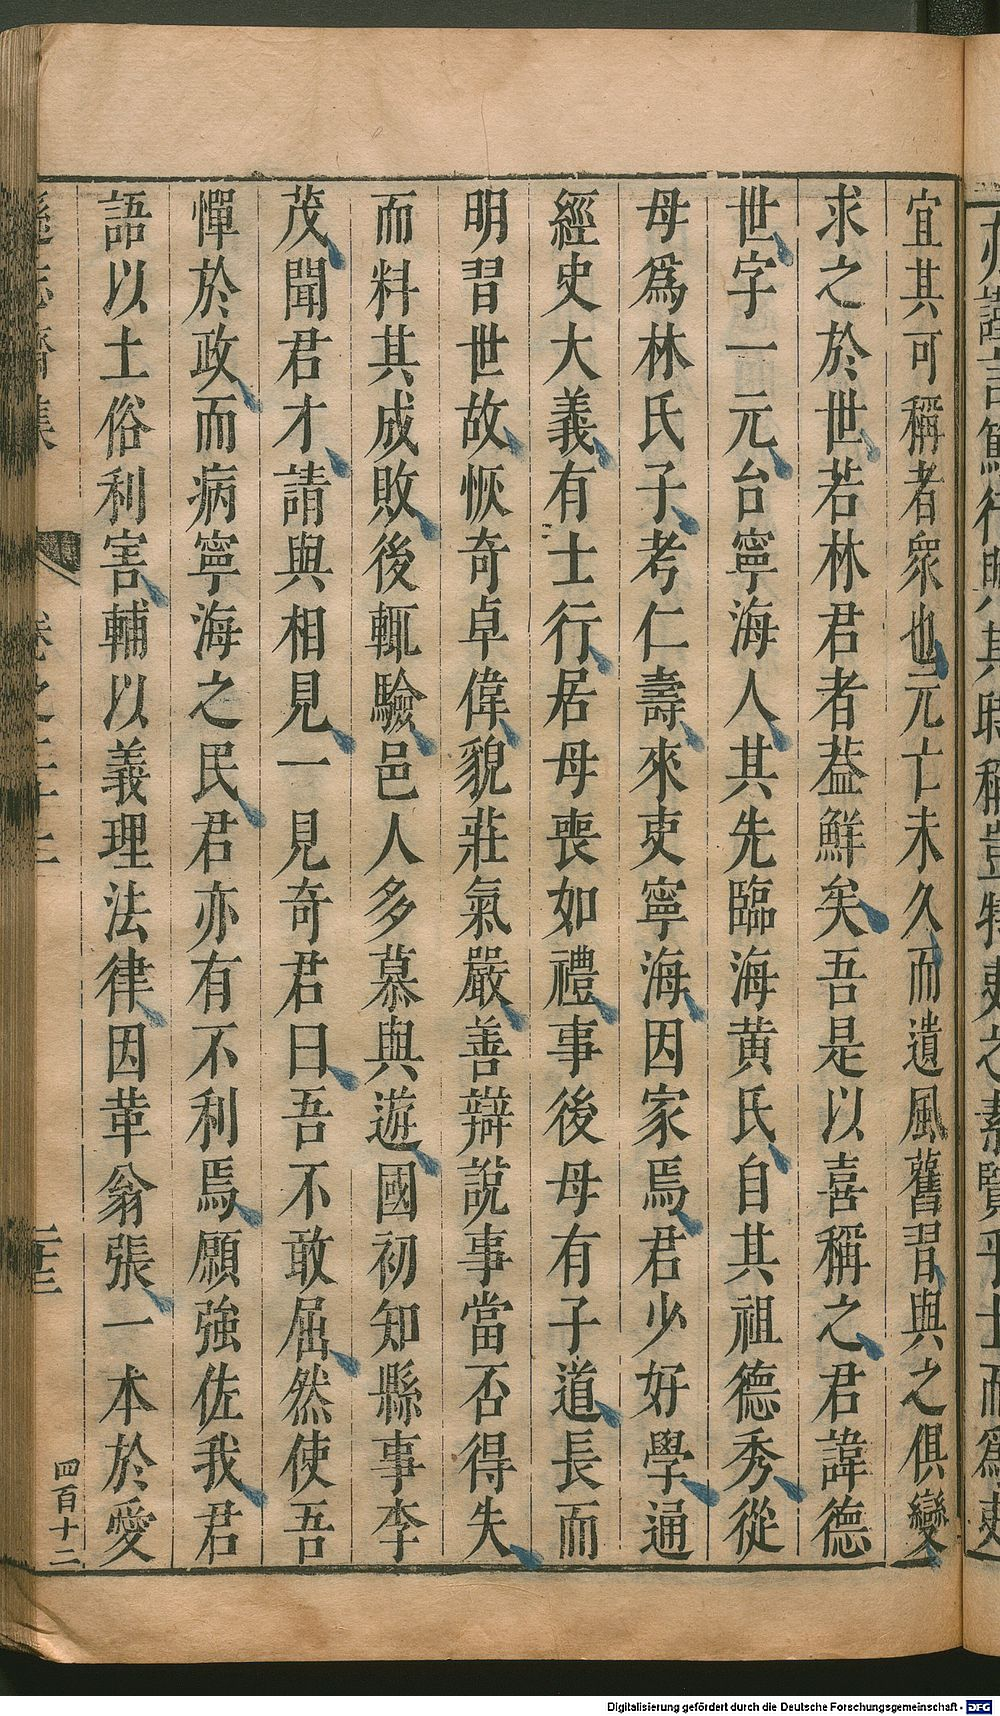 宜其可稱者衆也元亡未久而遺風舊習與之俱變
求之於世若林君者葢鮮矣吾是以喜稱之君諱德
世字一元台寧海人其先臨海黄氏自其祖德秀從
母爲林氏子考仁壽來吏寧海因家焉君少好學通
經史大義有士行居母喪如禮事後母有子道長而
明習世故恢奇卓偉貌莊氣嚴善辯說事當否得失
而料其成敗後輒驗邑人多慕與遊國初知縣事李
茂聞君才請與相見一見奇君曰吾不敢屈然使吾
憚於政而病寧海之民君亦有不利焉願強佐我君
語以土俗利害輔以義理法律因革翕張一本於愛
遜志齋集
卷之二十二
二十三
四百十二
Digitalisierung gefördert durch die Deutsche Forschungsgemeinschaft - DFG